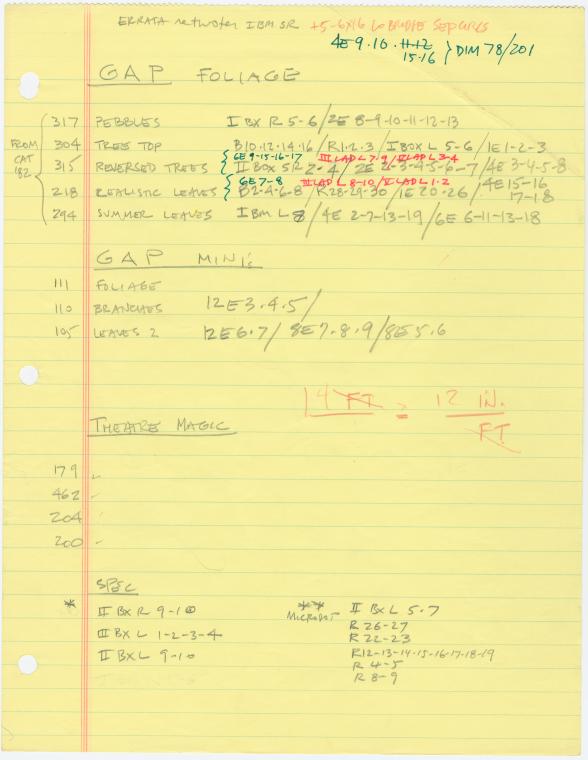 ERRATA networfer IBM SR +5-6X16 Lo BRIDGE SEPCURLS
4E 9·10·11-12
15-16 } DIM 78/201
GAP FOLIAGE
317 PEBBLES I BX R 5-6/2E 8-9-10-11-12-13
FROM CAT 182
304 TREES TOP B10·12·14·16/R1·2·3/IBOX L 5-6/1E 1-2-3
6E 9-15-16-17 III LAD L 7·9/V LAD L 3-4
315 REVERSED TREES II BOX 5R 2-4/2E 2-3-4-5-6-7/4E 3-4-5-8
6E 7-8 III LAD L 8-10/V LAD L 1-2
218 REALISTIC LEAVES B2-4-6-8/R28-29-30/1E 20-26/4E 15-16
17-18
294 SUMMER LEAVES I BM L 8/4E 2-7-13-19/6E 6-11-13-18
GAP MINI's
111 FOLIAGE
110 BRANCHES 12E3·4·5/
105 LEAVES 2 12E6·7/8E7·8·9/8E5·6
14 FT = 12 IN.
FT
THEATRE MAGIC
179 "
462 "
204 "
200 "
SPEC
* II BX R 9-10
III BX L 1-2-3-4
II BX L 9-10
** MICRODOT II BX L 5·7
R 26-27
R 22-23
R12-13-14-15-16-17-18-19
R 4-5
R 8-9